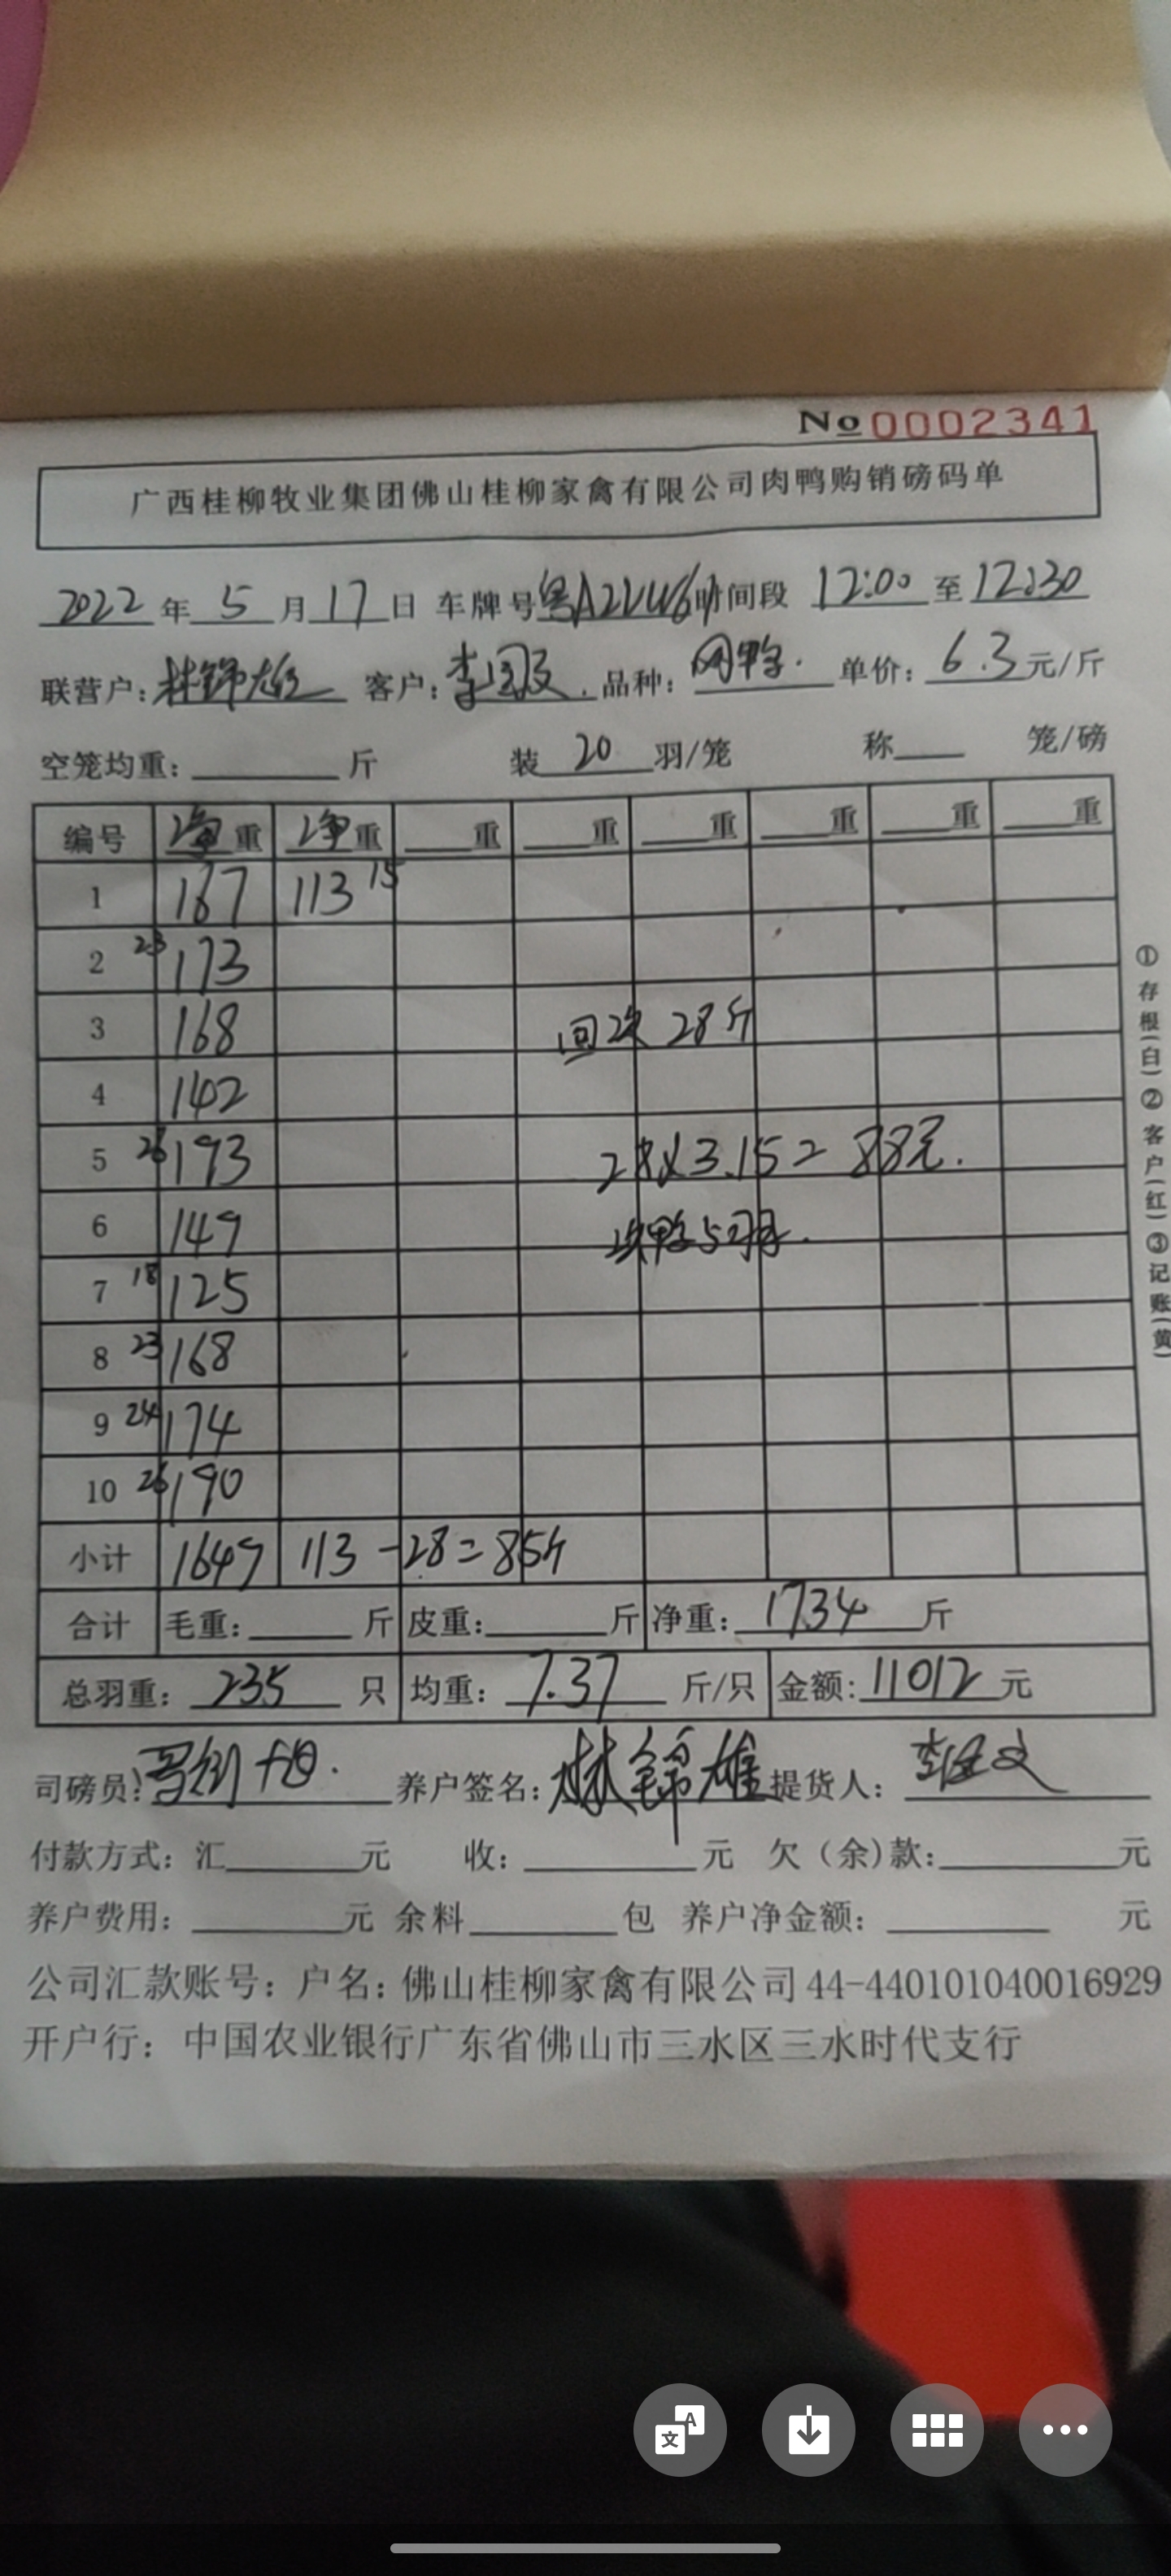 No 0002341
广西桂柳牧业集团佛山桂柳家禽有限公司肉鸭购销磅码单
2022年5月17日 车牌号 时间段 12:00 至 12:30
联营户: 林锦雄 客户: 品种: 单价: 6.3 元/斤
空笼均重: 斤 装 20 羽/笼 称 笼/磅
编号 净重 净重 重 重 重 重 重 重
1 167 113 15
2 23 173
3 168 回次 28斤
4 142
5 26 193 28×3.15=88元.
6 149 次鸭5羽.
7 18 125
8 23 168
9 24 174
10 26 190
小计 1649 113-28=85斤
合计 毛重: 斤 皮重: 斤 净重: 1734 斤
总羽重: 235 只 均重: 7.37 斤/只 金额: 11012 元
司磅员: 养户签名: 林锦雄 提货人:
付款方式: 汇 元 收: 元 欠(余)款: 元
养户费用: 元 余料 包 养户净金额: 元
公司汇款账号: 户名: 佛山桂柳家禽有限公司 44-440101040016929
开户行: 中国农业银行广东省佛山市三水区三水时代支行
①存根(白)②客户(红)③记账(黄)